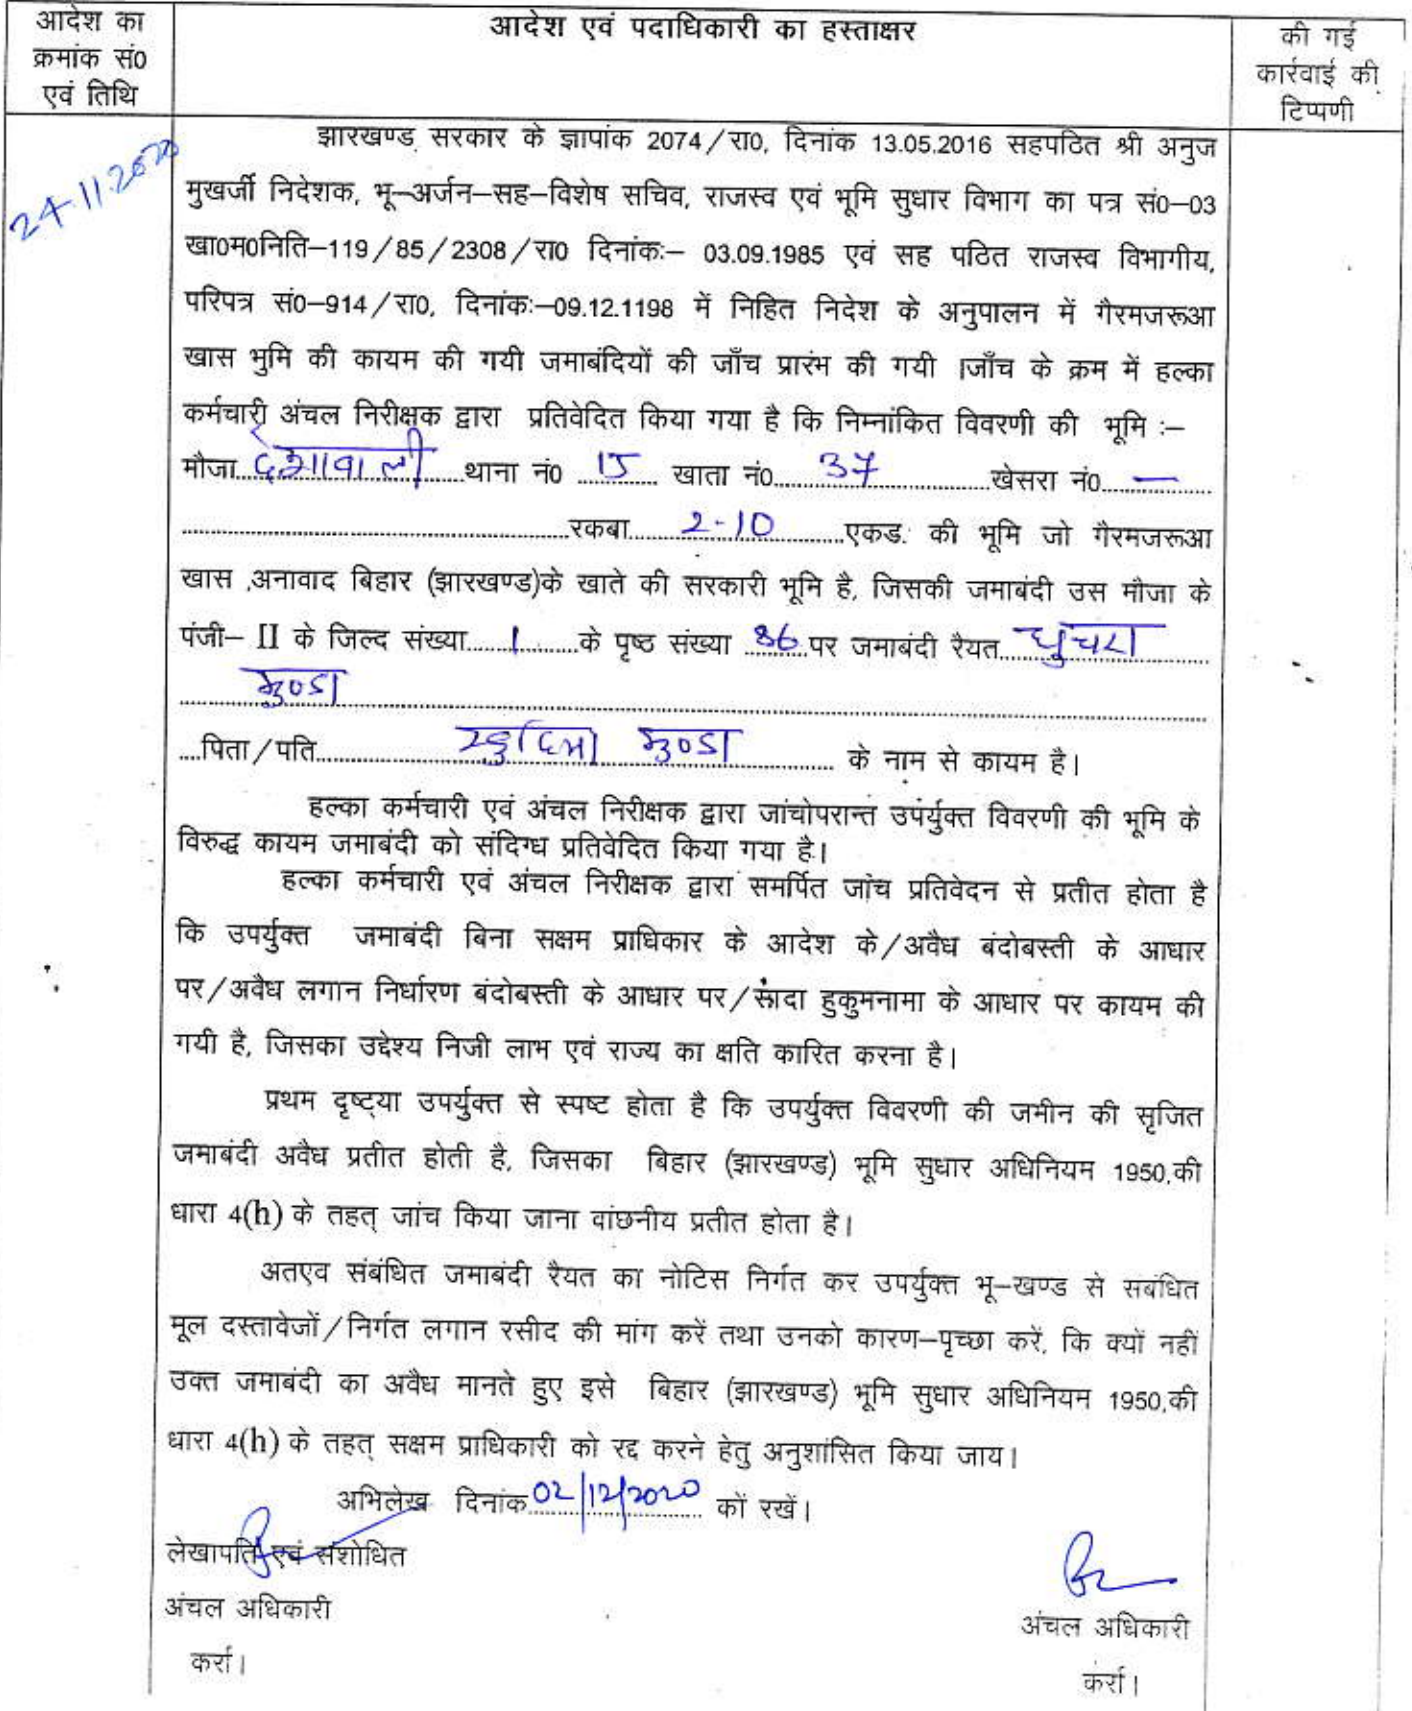 आदेश का
क्रमांक सं0
एवं तिथि
आदेश एवं पदाधिकारी का हस्ताक्षर
की गई
कार्रवाई की
टिप्पणी
24.11.2020
झारखण्ड सरकार के ज्ञापांक 2074/रा0, दिनांक 13.05.2016 सहपठित श्री अनुज
मुखर्जी निदेशक, भू–अर्जन–सह–विशेष सचिव, राजस्व एवं भूमि सुधार विभाग का पत्र सं0–03
खा0म0निति–119/85/2308/रा0 दिनांकः– 03.09.1985 एवं सह पठित राजस्व विभागीय,
परिपत्र सं0–914/रा0, दिनांकः–09.12.1198 में निहित निदेश के अनुपालन में गैरमजरूआ
खास भुमि की कायम की गयी जमाबंदियों की जाँच प्रारंभ की गयी ।जाँच के क्रम में हल्का
कर्मचारी अंचल निरीक्षक द्वारा प्रतिवेदित किया गया है कि निम्नांकित विवरणी की भूमि :–
मौजा थाना नं0 15 खाता नं0 37 खेसरा नं0 —
रकबा 2-10 एकड. की भूमि जो गैरमजरूआ
खास ,अनावाद बिहार (झारखण्ड)के खाते की सरकारी भूमि है, जिसकी जमाबंदी उस मौजा के
पंजी– II के जिल्द संख्या 1 के पृष्ठ संख्या 86 पर जमाबंदी रैयत
मुण्डा
पिता/पति मुण्डा के नाम से कायम है।
हल्का कर्मचारी एवं अंचल निरीक्षक द्वारा जांचोपरान्त उपर्युक्त विवरणी की भूमि के
विरुद्ध कायम जमाबंदी को संदिग्ध प्रतिवेदित किया गया है।
हल्का कर्मचारी एवं अंचल निरीक्षक द्वारा समर्पित जांच प्रतिवेदन से प्रतीत होता है
कि उपर्युक्त जमाबंदी बिना सक्षम प्राधिकार के आदेश के/अवैध बंदोबस्ती के आधार
पर/अवैध लगान निर्धारण बंदोबस्ती के आधार पर/सादा हुकुमनामा के आधार पर कायम की
गयी है, जिसका उद्देश्य निजी लाभ एवं राज्य का क्षति कारित करना है।
प्रथम दृष्ट्या उपर्युक्त से स्पष्ट होता है कि उपर्युक्त विवरणी की जमीन की सृजित
जमाबंदी अवैध प्रतीत होती है, जिसका बिहार (झारखण्ड) भूमि सुधार अधिनियम 1950,की
धारा 4(h) के तहत् जांच किया जाना वांछनीय प्रतीत होता है।
अतएव संबंधित जमाबंदी रैयत का नोटिस निर्गत कर उपर्युक्त भू–खण्ड से सबंधित
मूल दस्तावेजों/निर्गत लगान रसीद की मांग करें तथा उनको कारण–पृच्छा करें, कि क्यों नहीं
उक्त जमाबंदी का अवैध मानते हुए इसे बिहार (झारखण्ड) भूमि सुधार अधिनियम 1950,की
धारा 4(h) के तहत् सक्षम प्राधिकारी को रद्द करने हेतु अनुशांसित किया जाय।
अभिलेख दिनांक 02/12/2020 कों रखें।
लेखापति एवं संशोधित
अंचल अधिकारी
कर्रा।
अंचल अधिकारी
कर्रा।